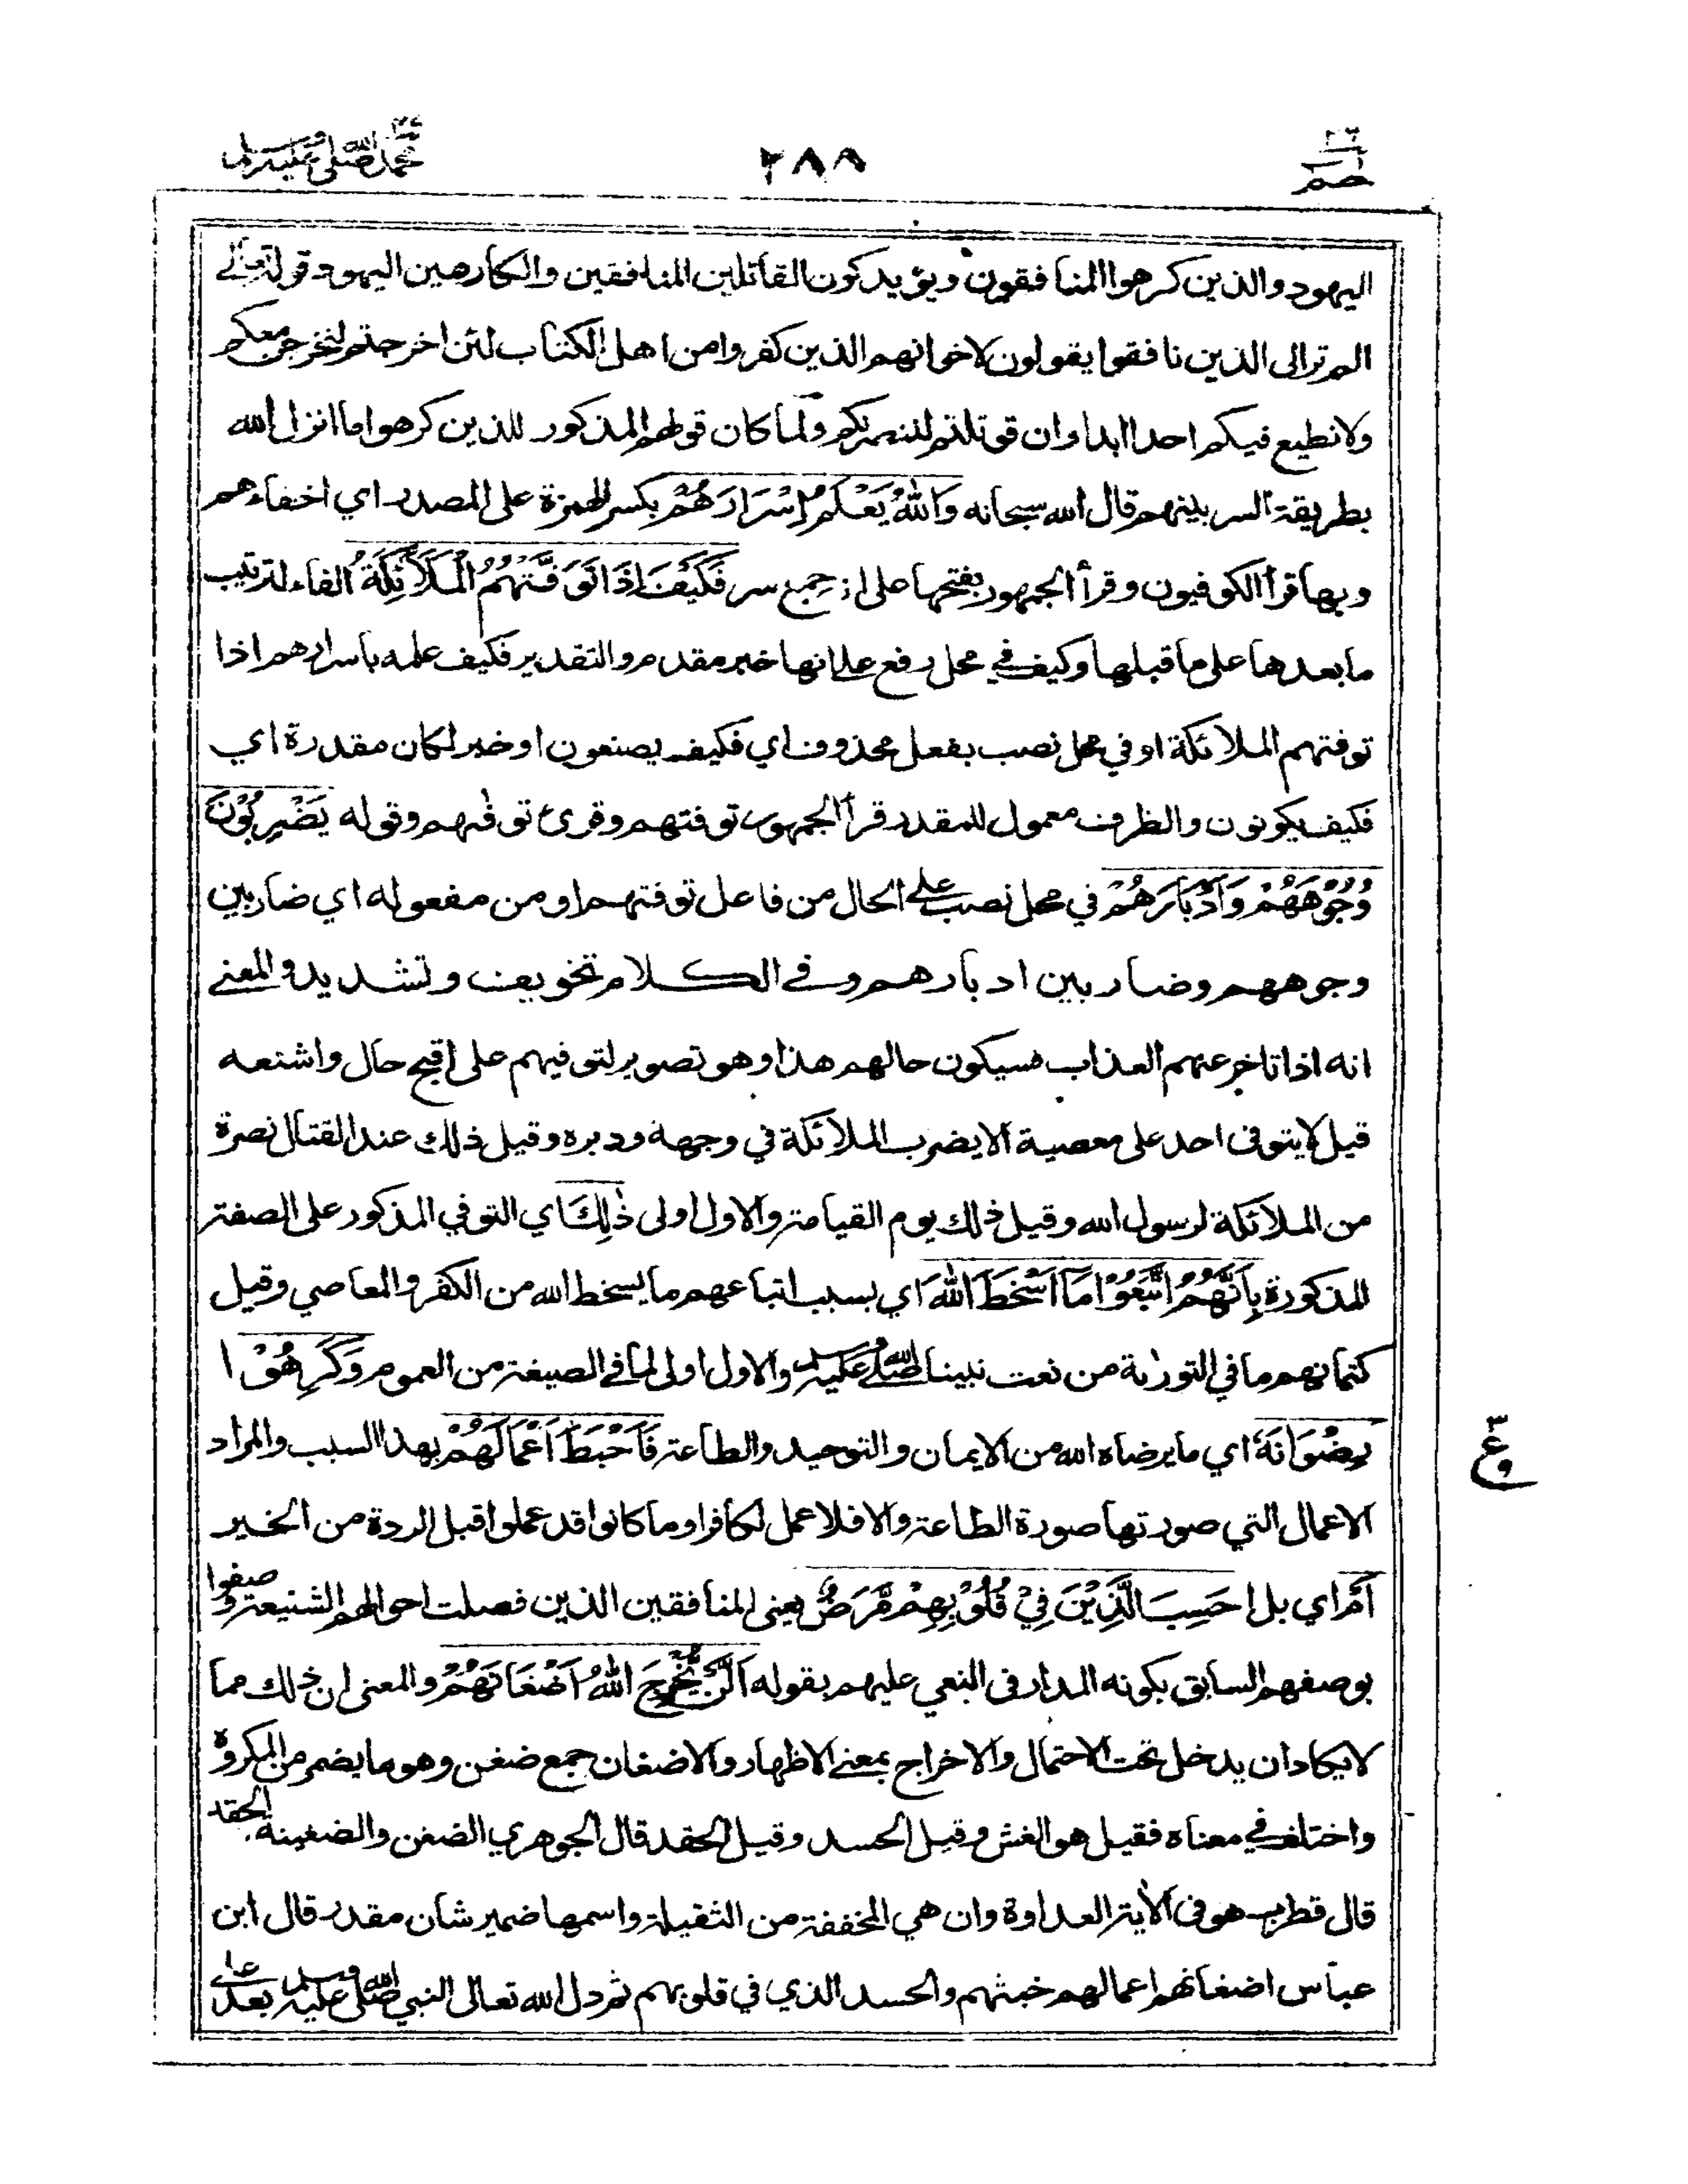 حم ٢٦
٢٨٨
محمد صلى الله عليه وسلم ٤٧
اليهود والذين كرهوا المنافقون ويؤيد كون القائلين المنافقين والكارهين اليهود قوله تعالى
الم تر الى الذين نافقوا يقولون لاخوانهم الذين كفروا من اهل الكتاب لئن اخرجتم لنخرجن معكم
ولا نطيع فيكم احدا ابدا وان قوتلتم لننصرنكم ولما كان قولهم المذكور للذين كرهوا ما انزل الله
بطريقة السر بينهم قال الله سبحانه وَاللّٰهُ يَعْلَمُ اِسْرَارَهُمْ بكسر الهمزة على المصدر اي اخفاءهم
وبها قرأ الكوفيون وقرأ الجمهور بفتحها على انه جمع سر فَكَيْفَ اِذَا تَوَفَّتْهُمُ الْمَلَآئِكَةُ الفاء لترتيب
ما بعدها على ما قبلها وكيف في محل رفع على انها خبر مقدم والتقدير فكيف علمه باسرارهم اذا
توفتهم الملائكة او في محل نصب بفعل محذوف اي فكيف يصنعون او خبر لكان مقدرة اي
فكيف يكونون والظرف معمول للمقدر قرأ الجمهور توفتهم وقرئ توفٰهم وقوله يَضْرِبُوْنَ
وُجُوْهَهُمْ وَاَدْبَارَهُمْ في محل نصب على الحال من فاعل توفتهم او من مفعوله اي ضاربين
وجوههم وضاربين ادبارهم وفي الكلام تخويف وتشديد والمعنى
انه اذا تاخر عنهم العذاب فسيكون حالهم هذا وهو تصوير لتوفيهم على اقبح حال واشنعه
قيل لا يتوفى احد على معصية الا يضرب الملائكة في وجهه ودبره وقيل ذلك عند القتال نصرة
من الملائكة لرسول الله وقيل ذلك يوم القيامة والاول اولى ذٰلِكَ اي التوفي المذكور على الصفة
المذكورة بِاَنَّهُمُ اتَّبَعُوْا مَآ اَسْخَطَ اللّٰهَ اي بسبب اتباعهم ما يسخط الله من الكفر والمعاصي وقيل
كتمانهم ما في التورٰىة من نعت نبينا صلى الله عليه وسلم والاول اولى لما في الصيغة من العموم وَكَرِهُوْا
رِضْوَانَهٗ اي ما يرضاه الله من الايمان والتوحيد والطاعة فَاَحْبَطَ اَعْمَالَهُمْ بهذا السبب والمراد
ع
الاعمال التي صورتها صورة الطاعة والا فلا عمل لكافر او ما كانوا قد عملوا قبل الردة من الخير
اَمْ اي بل احَسِبَ الَّذِيْنَ فِيْ قُلُوْبِهِمْ مَّرَضٌ يعني المنافقين الذين فصلت احوالهم الشنيعة وصفوا
بوصفهم السابق بكونه المدار في النعي عليهم بقوله اَلَّنْ يُّخْرِجَ اللّٰهُ اَضْغَانَهُمْ والمعنى ان ذلك مما
لا يكاد ان يدخل تحت الاحتمال والاخراج بمعنى الاظهار والاضغان جمع ضغن وهو ما يضمر من المكروه
واختلف في معناه فقيل هو الغش وقيل الحسد وقيل الحقد قال الجوهري الضغن والضغينة الحقد
قال قطرب هو في الاٰية العداوة وان هي المخففة من الثقيلة واسمها ضمير شان مقدر قال ابن
عباس اضغانهم اعمالهم خبثهم والحسد الذي في قلوبهم ثم دل الله تعالى النبي صلى الله عليه وسلم بعد على